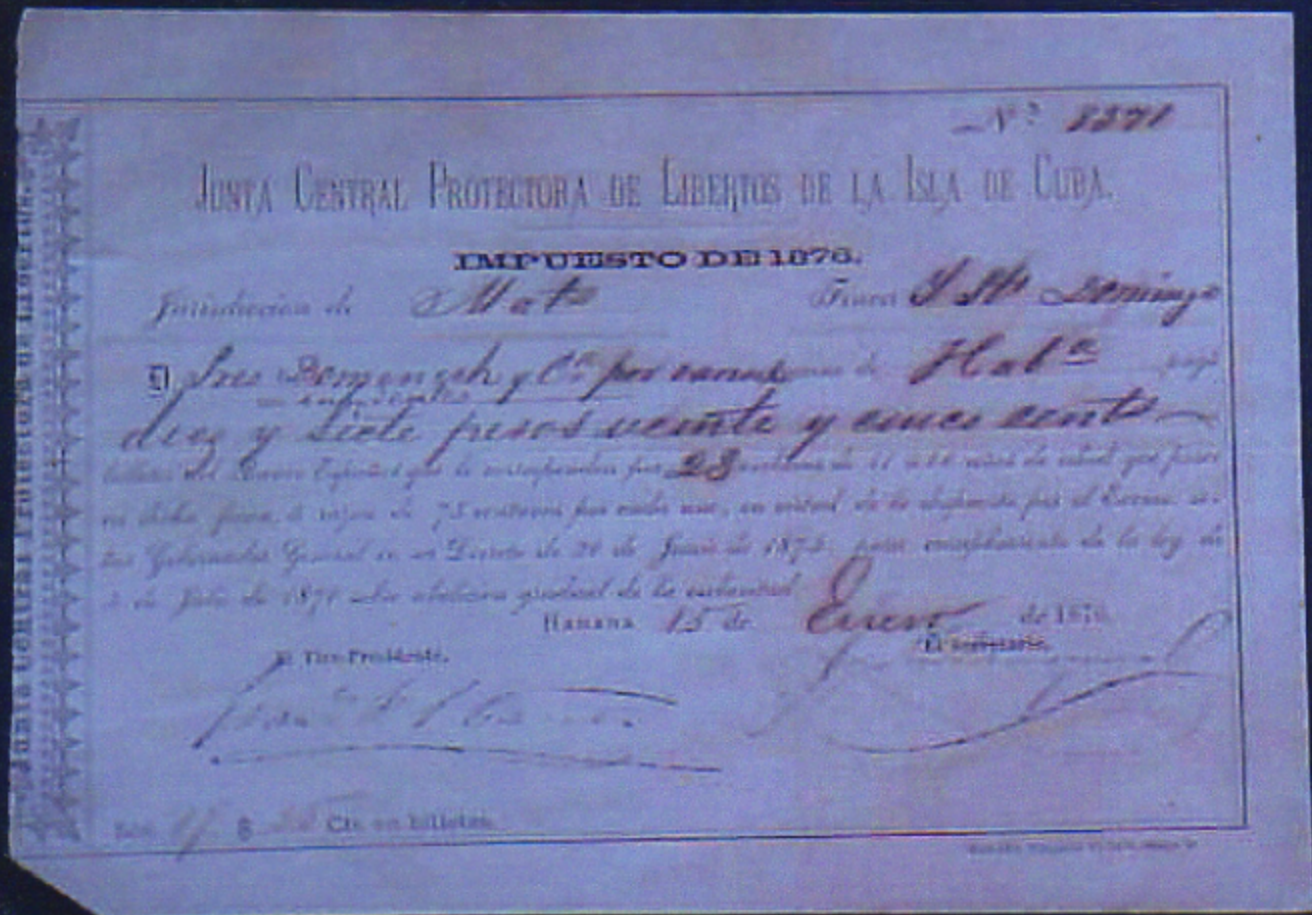 Nº 8371
JUNTA CENTRAL PROTECTORA DE LIBERTOS DE LA ISLA DE CUBA.
IMPUESTO DE 1876.
Jurisdiccion de Mats Finca Y Sto Domingo
D Sres Domenech y Cª por de Habª pagó
diez y siete pesos veinte y cinco cents
billetes del Banco Español que le corresponden por 23 esclavos de 11 á 60 años de edad que posee
en dicha finca, á razon de 75 centavos por cada uno, en virtud de lo dispuesto por el Excmo. Se-
ñor Gobernador General en su Decreto de de Junio de 1875, para cumplimiento de la ley de
4 de Julio de 1870 de abolicion gradual de la esclavitud.
Habana 15 de Enero de 1876.
El Vice-Presidente. El Secretario.
Son 17 $ 25 Cts. en billetes.
Junta Central Protectora de Libertos.